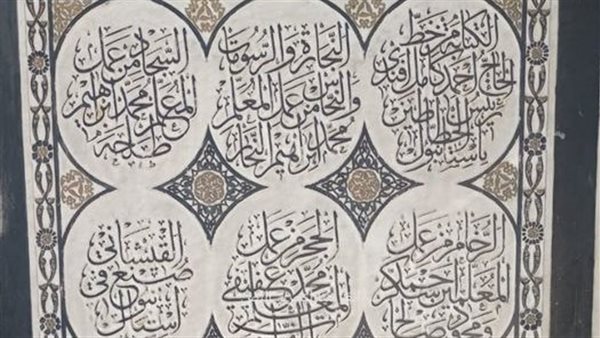 الكتابة من خط
الحاج احمد كامل افندي
رئيس الخطاطين
باستانبول
النجارة والرسومات
والنحاس من عمل المعلم
محمد ابراهيم النجار
السجاد من عمل
المعلم محمد ابراهيم
الرخام من عمل
المعلمين
ومحمود صالح
الحجر من عمل
محمد عفيفي
القلشاني
صنع في
استانبول